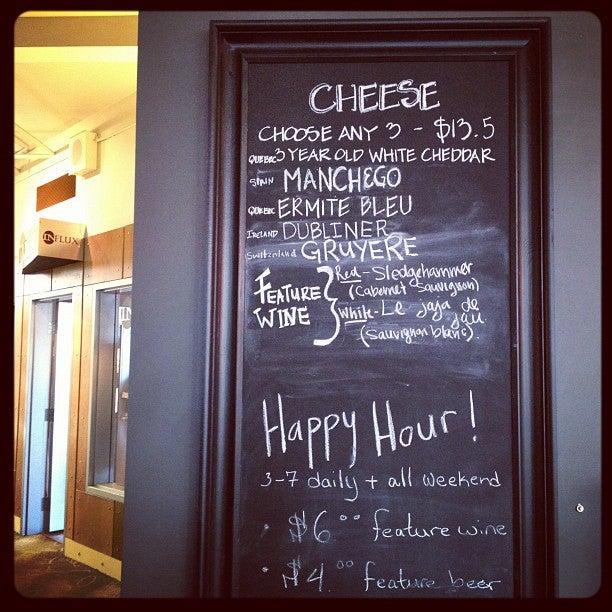 CHEESE
CHOOSE ANY 3 - $13.5
QUEBEC 3 YEAR OLD WHITE CHEDDAR
SPAIN MANCHEGO
QUEBEC ERMITE BLEU
IRELAND DUBLINER
Switzerland GRUYERE
FEATURE WINE
Red - Sledgehammer
(Cabernet Sauvignon)
White - Le jaja de
jau
(Sauvignon blanc).
Happy Hour!
3-7 daily + all weekend
• $6.00 feature wine
• $4.00 feature beer
INFLUX
IN